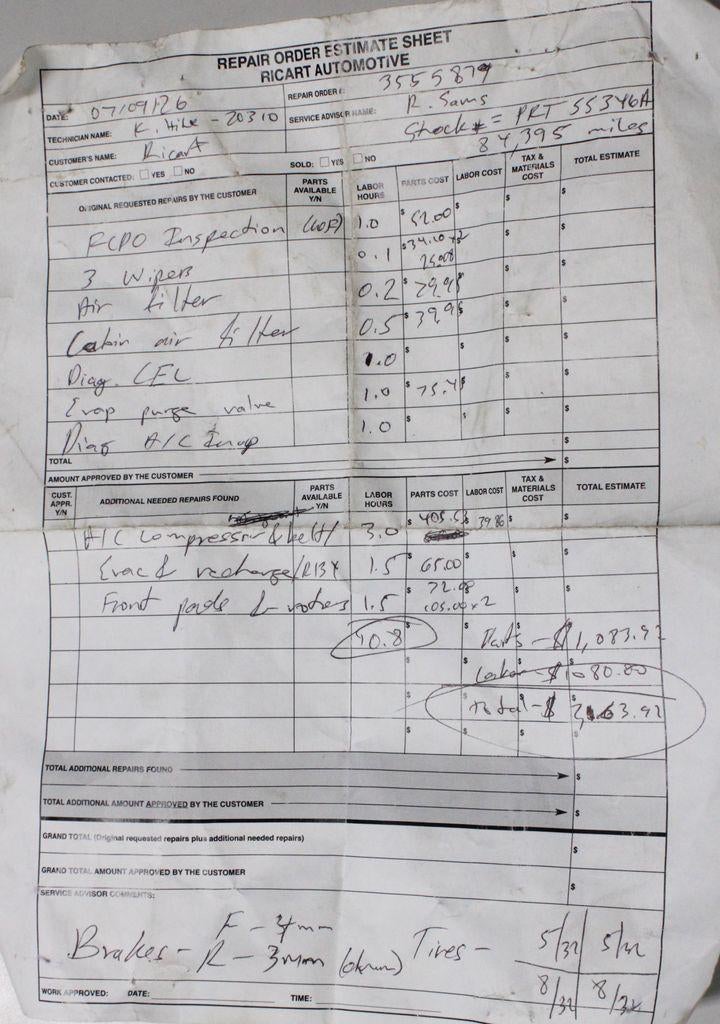 REPAIR ORDER ESTIMATE SHEET
RICART AUTOMOTIVE
DATE: 07/09/26 REPAIR ORDER #: 3555879
TECHNICIAN NAME: K. - 20310 SERVICE ADVISOR NAME: R. Sams
CUSTOMER'S NAME: Ricart Stock # = PRT 55346A
84,395 miles
CUSTOMER CONTACTED: YES NO SOLD: YES NO
ORIGINAL REQUESTED REPAIRS BY THE CUSTOMER PARTS AVAILABLE Y/N LABOR HOURS PARTS COST LABOR COST TAX & MATERIALS COST TOTAL ESTIMATE
FCPO Inspection (LOF) 1.0 $ 52.00
3 Wipers 0.1 $ x2
Air filter 0.2 $ 29.95
Cabin air filter 0.5 $ 39.95
Diag. CEL 1.0
Evap purge valve 1.0 $ 75.
Diag A/C Inop 1.0
TOTAL $
AMOUNT APPROVED BY THE CUSTOMER $
CUST. APPR. Y/N ADDITIONAL NEEDED REPAIRS FOUND PARTS AVAILABLE Y/N LABOR HOURS PARTS COST LABOR COST TAX & MATERIALS COST TOTAL ESTIMATE
A/C compressor & belt/ 3.0 $ 405.53 $ 39.86
Evac & recharge/R134 1.5 $ 65.00
Front pads & rotors 1.5 72.08
105.00 x 2
10.8 Parts - $1,083.92
Labor - $1080.80
Total - $ 63.92
TOTAL ADDITIONAL REPAIRS FOUND $
TOTAL ADDITIONAL AMOUNT APPROVED BY THE CUSTOMER $
GRAND TOTAL (Original requested repairs plus additional needed repairs) $
GRAND TOTAL AMOUNT APPROVED BY THE CUSTOMER $
SERVICE ADVISOR COMMENTS:
F - 4mm
Brakes - R - 3mm (drum) Tires - 5/32 5/32
8/32 8/32
WORK APPROVED: DATE: TIME: